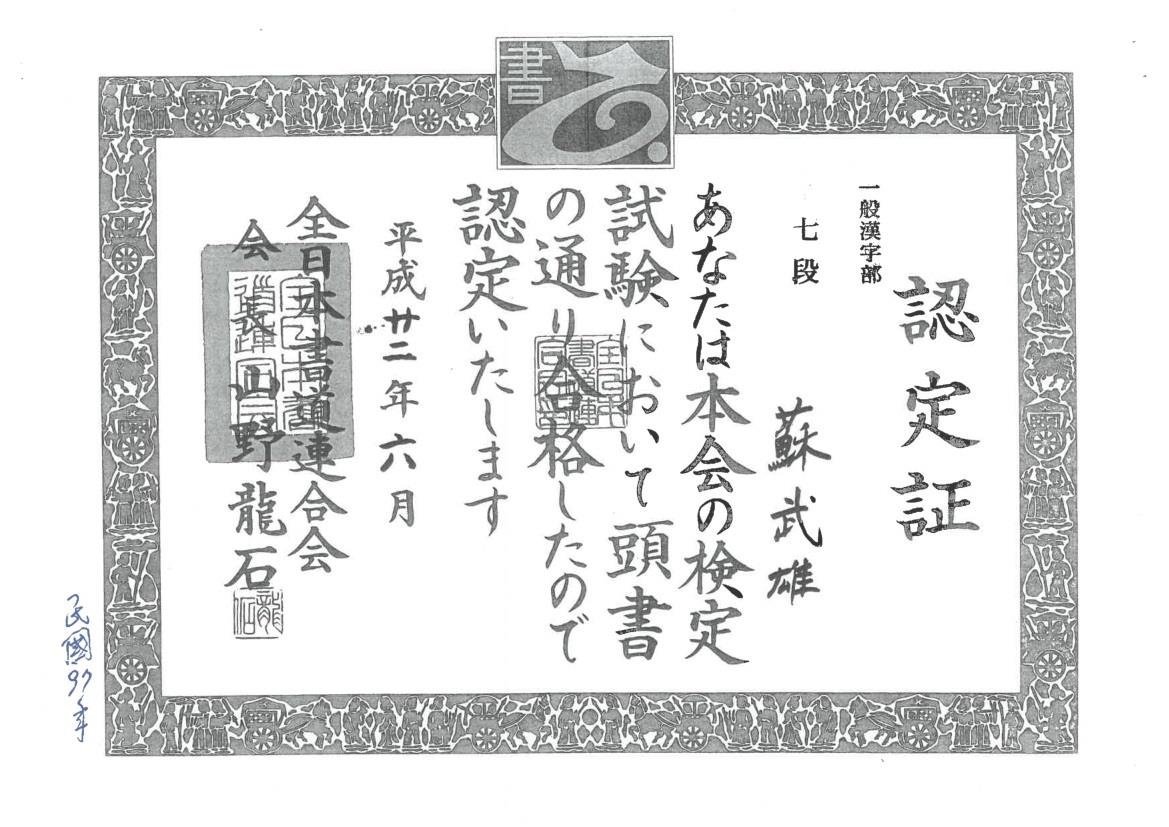 書
認定証
一般漢字部
七段
蘇武雄
あなたは本会の検定
試験において頭書
の通り合格したので
認定いたします
平成廿二年六月
全日本書道連合会
会長山野龍石
龍石
民國99年